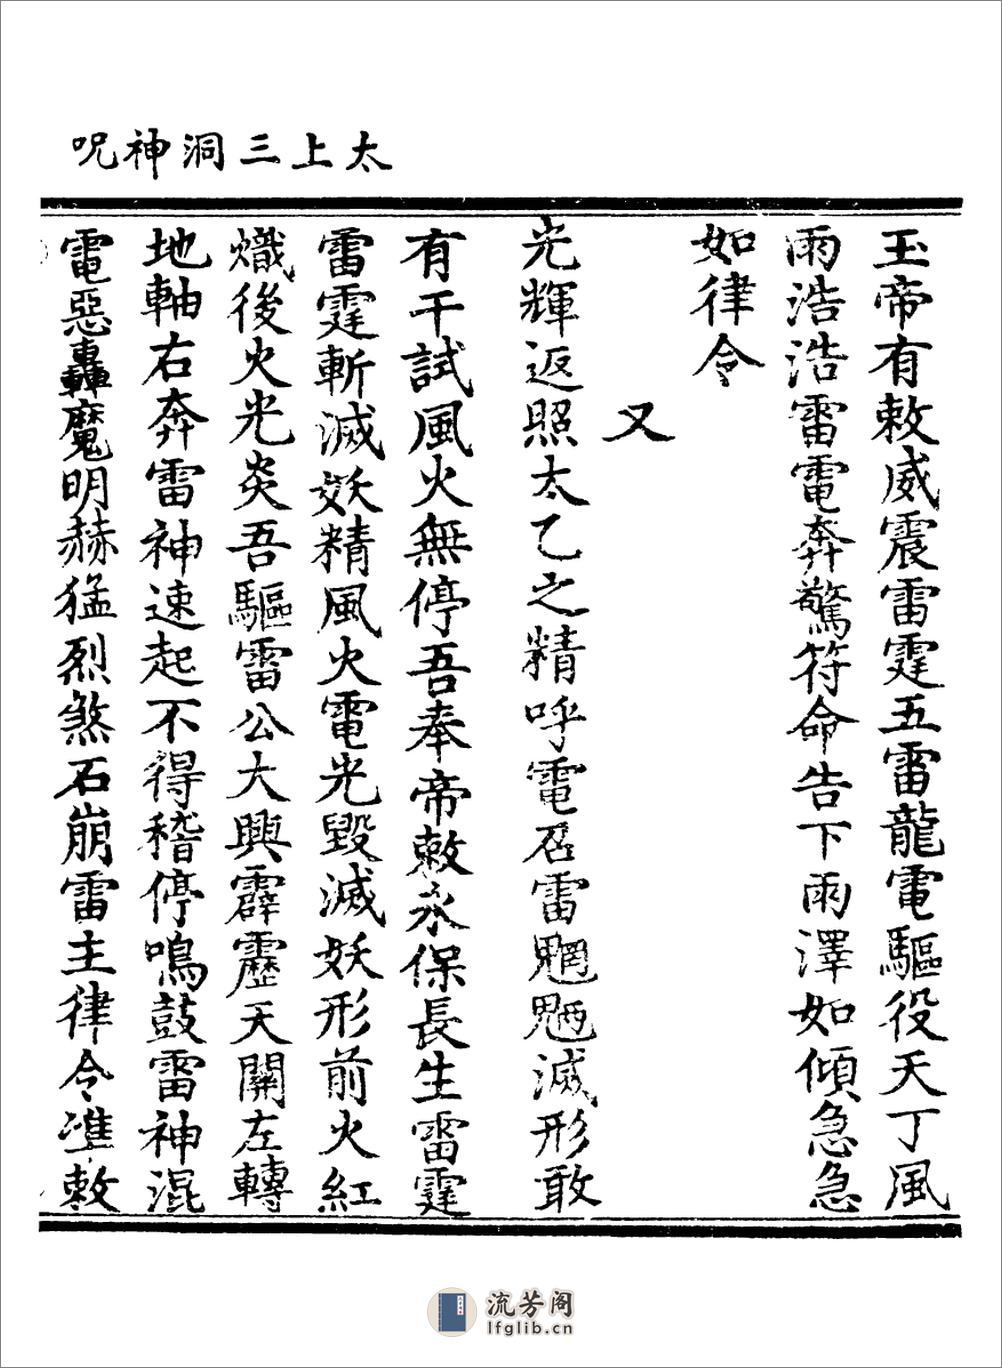 太上三洞神呪
玉帝有敕威震雷霆五雷龍電驅役天丁風
雨浩浩雷電奔驚符命告下雨澤如傾急急
如律令
又
光輝返照太乙之精呼電召雷魍魎滅形敢
有干試風火無停吾奉帝敕永保長生雷霆
雷霆斬滅妖精風火電光毀滅妖形前火紅
熾後火光炎吾驅雷公大興霹靂天關左轉
地軸右奔雷神速起不得稽停鳴鼓雷神混
電惡轟魔明赫猛烈煞石崩雷主律令準敕
流芳阁
lfglib.cn